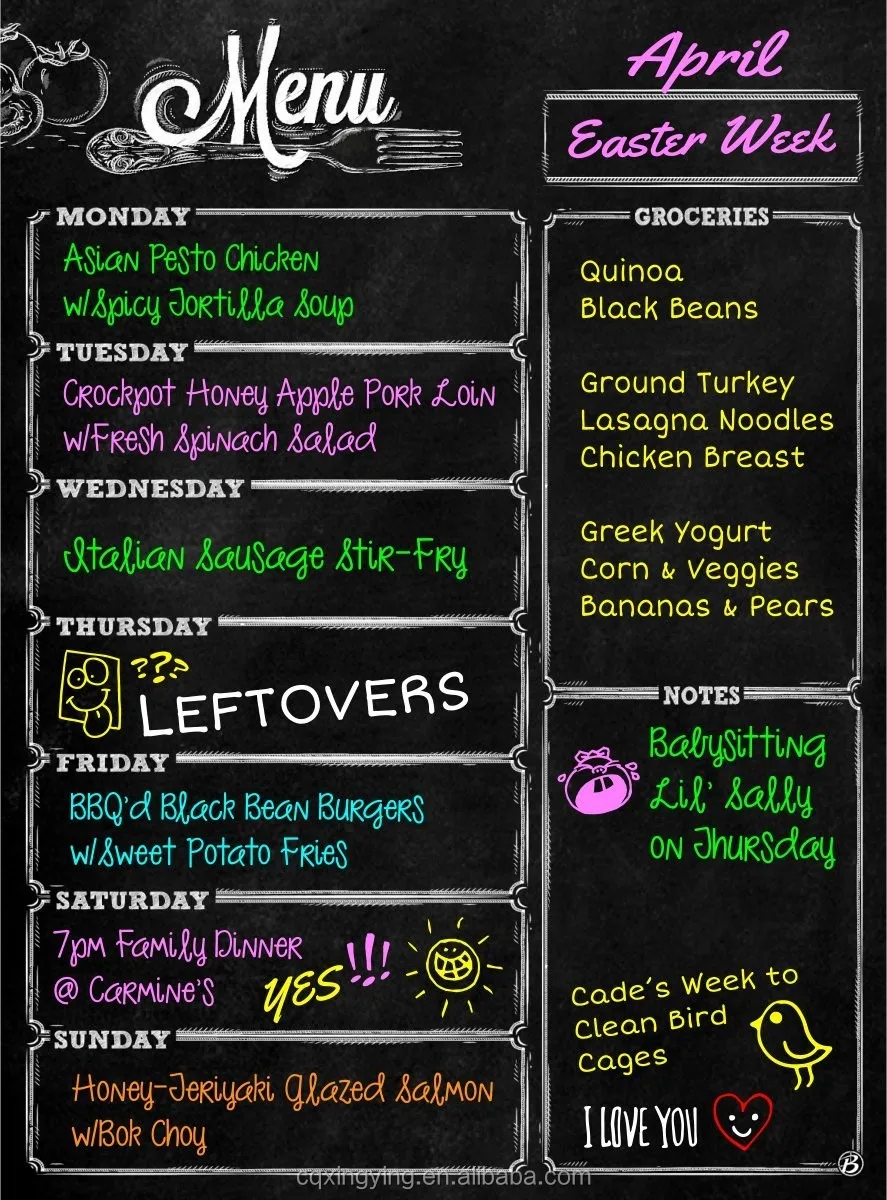 Menu
April
Easter Week
MONDAY
Asian Pesto Chicken
w/Spicy Tortilla Soup
TUESDAY
Crockpot Honey Apple Pork Loin
w/Fresh Spinach Salad
WEDNESDAY
Italian Sausage Stir-Fry
THURSDAY
???
LEFTOVERS
FRIDAY
BBQ'd Black Bean Burgers
w/Sweet Potato Fries
SATURDAY
7pm Family Dinner
@ Carmine's
YES!!!
SUNDAY
Honey-Teriyaki Glazed Salmon
w/Bok Choy
GROCERIES
Quinoa
Black Beans
Ground Turkey
Lasagna Noodles
Chicken Breast
Greek Yogurt
Corn & Veggies
Bananas & Pears
NOTES
Babysitting
Lil' Sally
on Thursday
Cade's Week to
Clean Bird
Cages
I LOVE YOU
B
cqxingying.en.alibaba.com